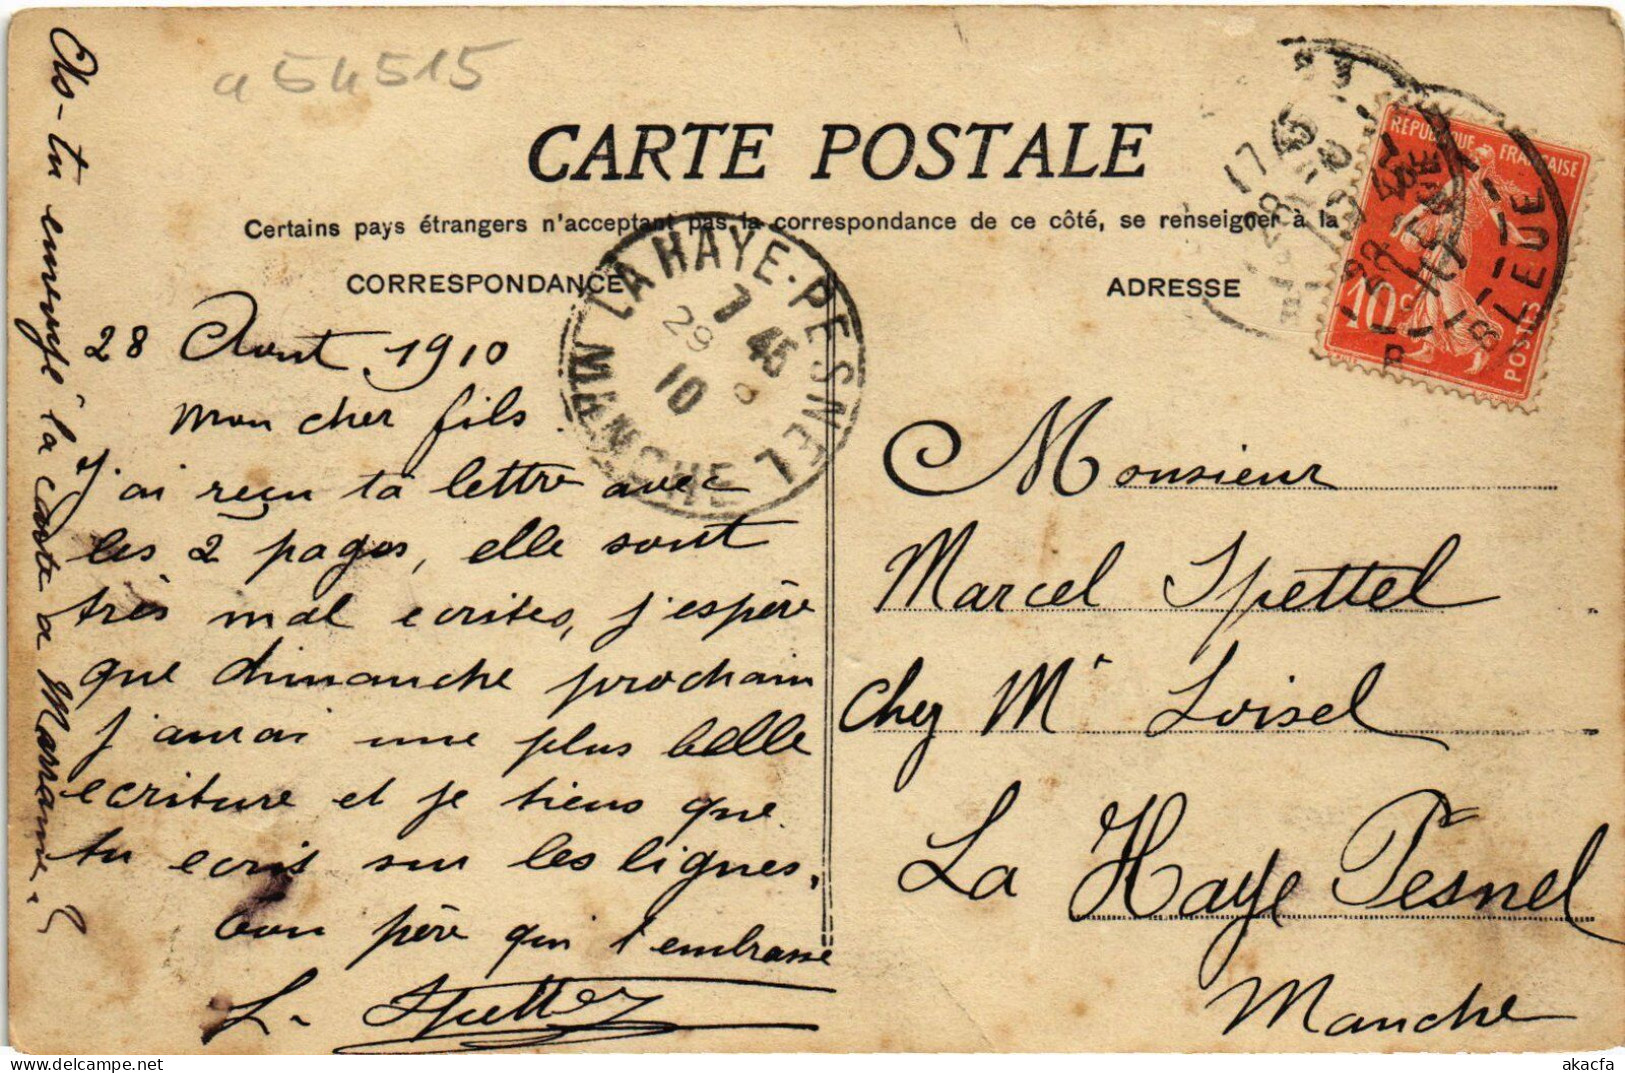 a54515
CARTE POSTALE
Certains pays étrangers n'acceptant pas la correspondance de ce côté, se renseigner à la
CORRESPONDANCE
ADRESSE
REPUBLIQUE FRANÇAISE
10c
POSTES
17 45
28
10
LEUE
LA HAYE-PESNEL
7 45
29 8
10
MANCHE
28 Aout 1910
Mon cher fils.
J'ai reçu ta lettre avec
les 2 pages, elle sont
très mal ecrites, j'espère
que dimanche prochain
j'aurai une plus belle
ecriture et je tiens que
tu ecris sur les lignes,
ton père qui t'embrasse
L. Spettel
As-tu envoyé la carte a Marraine. ?
Monsieur
Marcel Spettel
Chez Mr Loisel
La Haye Pesnel
Manche
akacfa